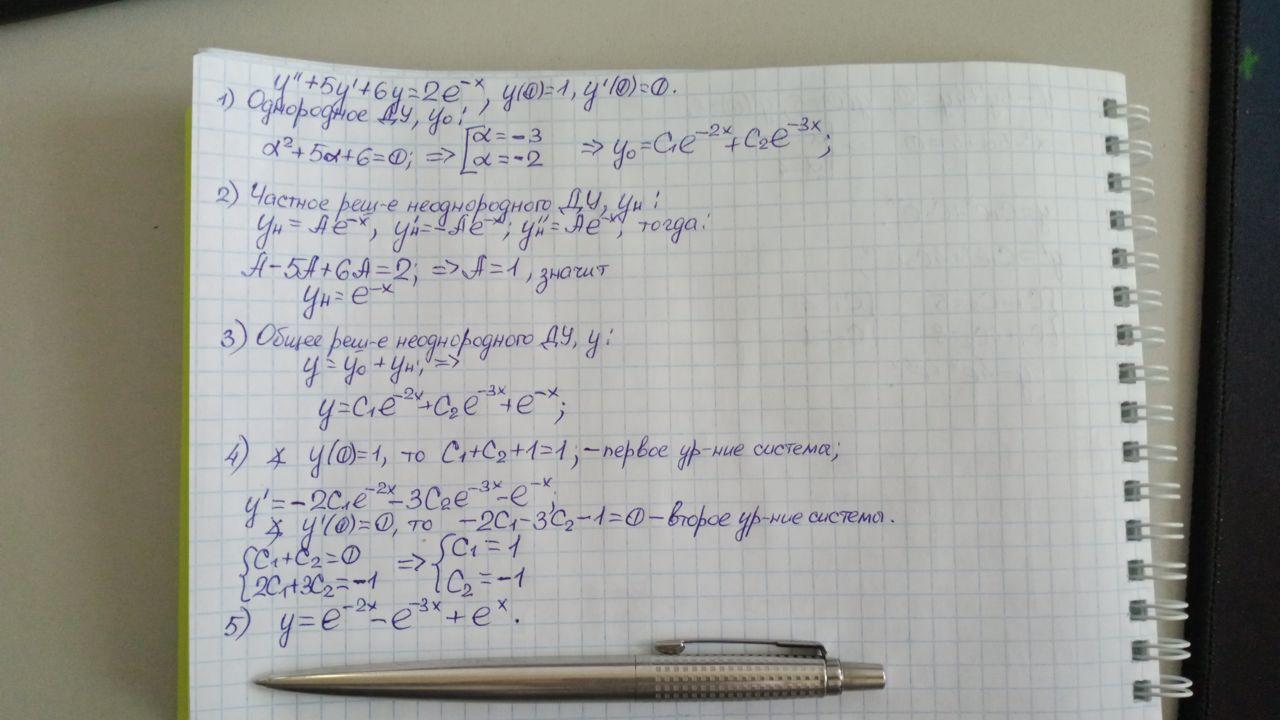 y''+5y'+6y=2e^{-x}, y(0)=1, y'(0)=0.
1) Однородное ДУ, y₀:
α²+5α+6=0; => [α=-3 α=-2 => y₀=C₁e^{-2x}+C₂e^{-3x};
2) Частное реш-е неоднородного ДУ, yн:
yн=Ae^{-x}, y'н=-Ae^{-x}; y''н=Ae^{-x}, тогда:
A-5A+6A=2; =>A=1, значит
yн=e^{-x}
3) Общее реш-е неоднородного ДУ, y:
y=y₀+yн; =>
y=C₁e^{-2x}+C₂e^{-3x}+e^{-x};
4) ∡ y(0)=1, то C₁+C₂+1=1; -первое ур-ние система;
y'=-2C₁e^{-2x}-3C₂e^{-3x}-e^{-x};
∡ y'(0)=0, то -2C₁-3C₂-1=0 - второе ур-ние системы.
{C₁+C₂=0 => {C₁=1
2C₁+3C₂=-1 C₂=-1
5) y=e^{-2x}-e^{-3x}+e^{x}.